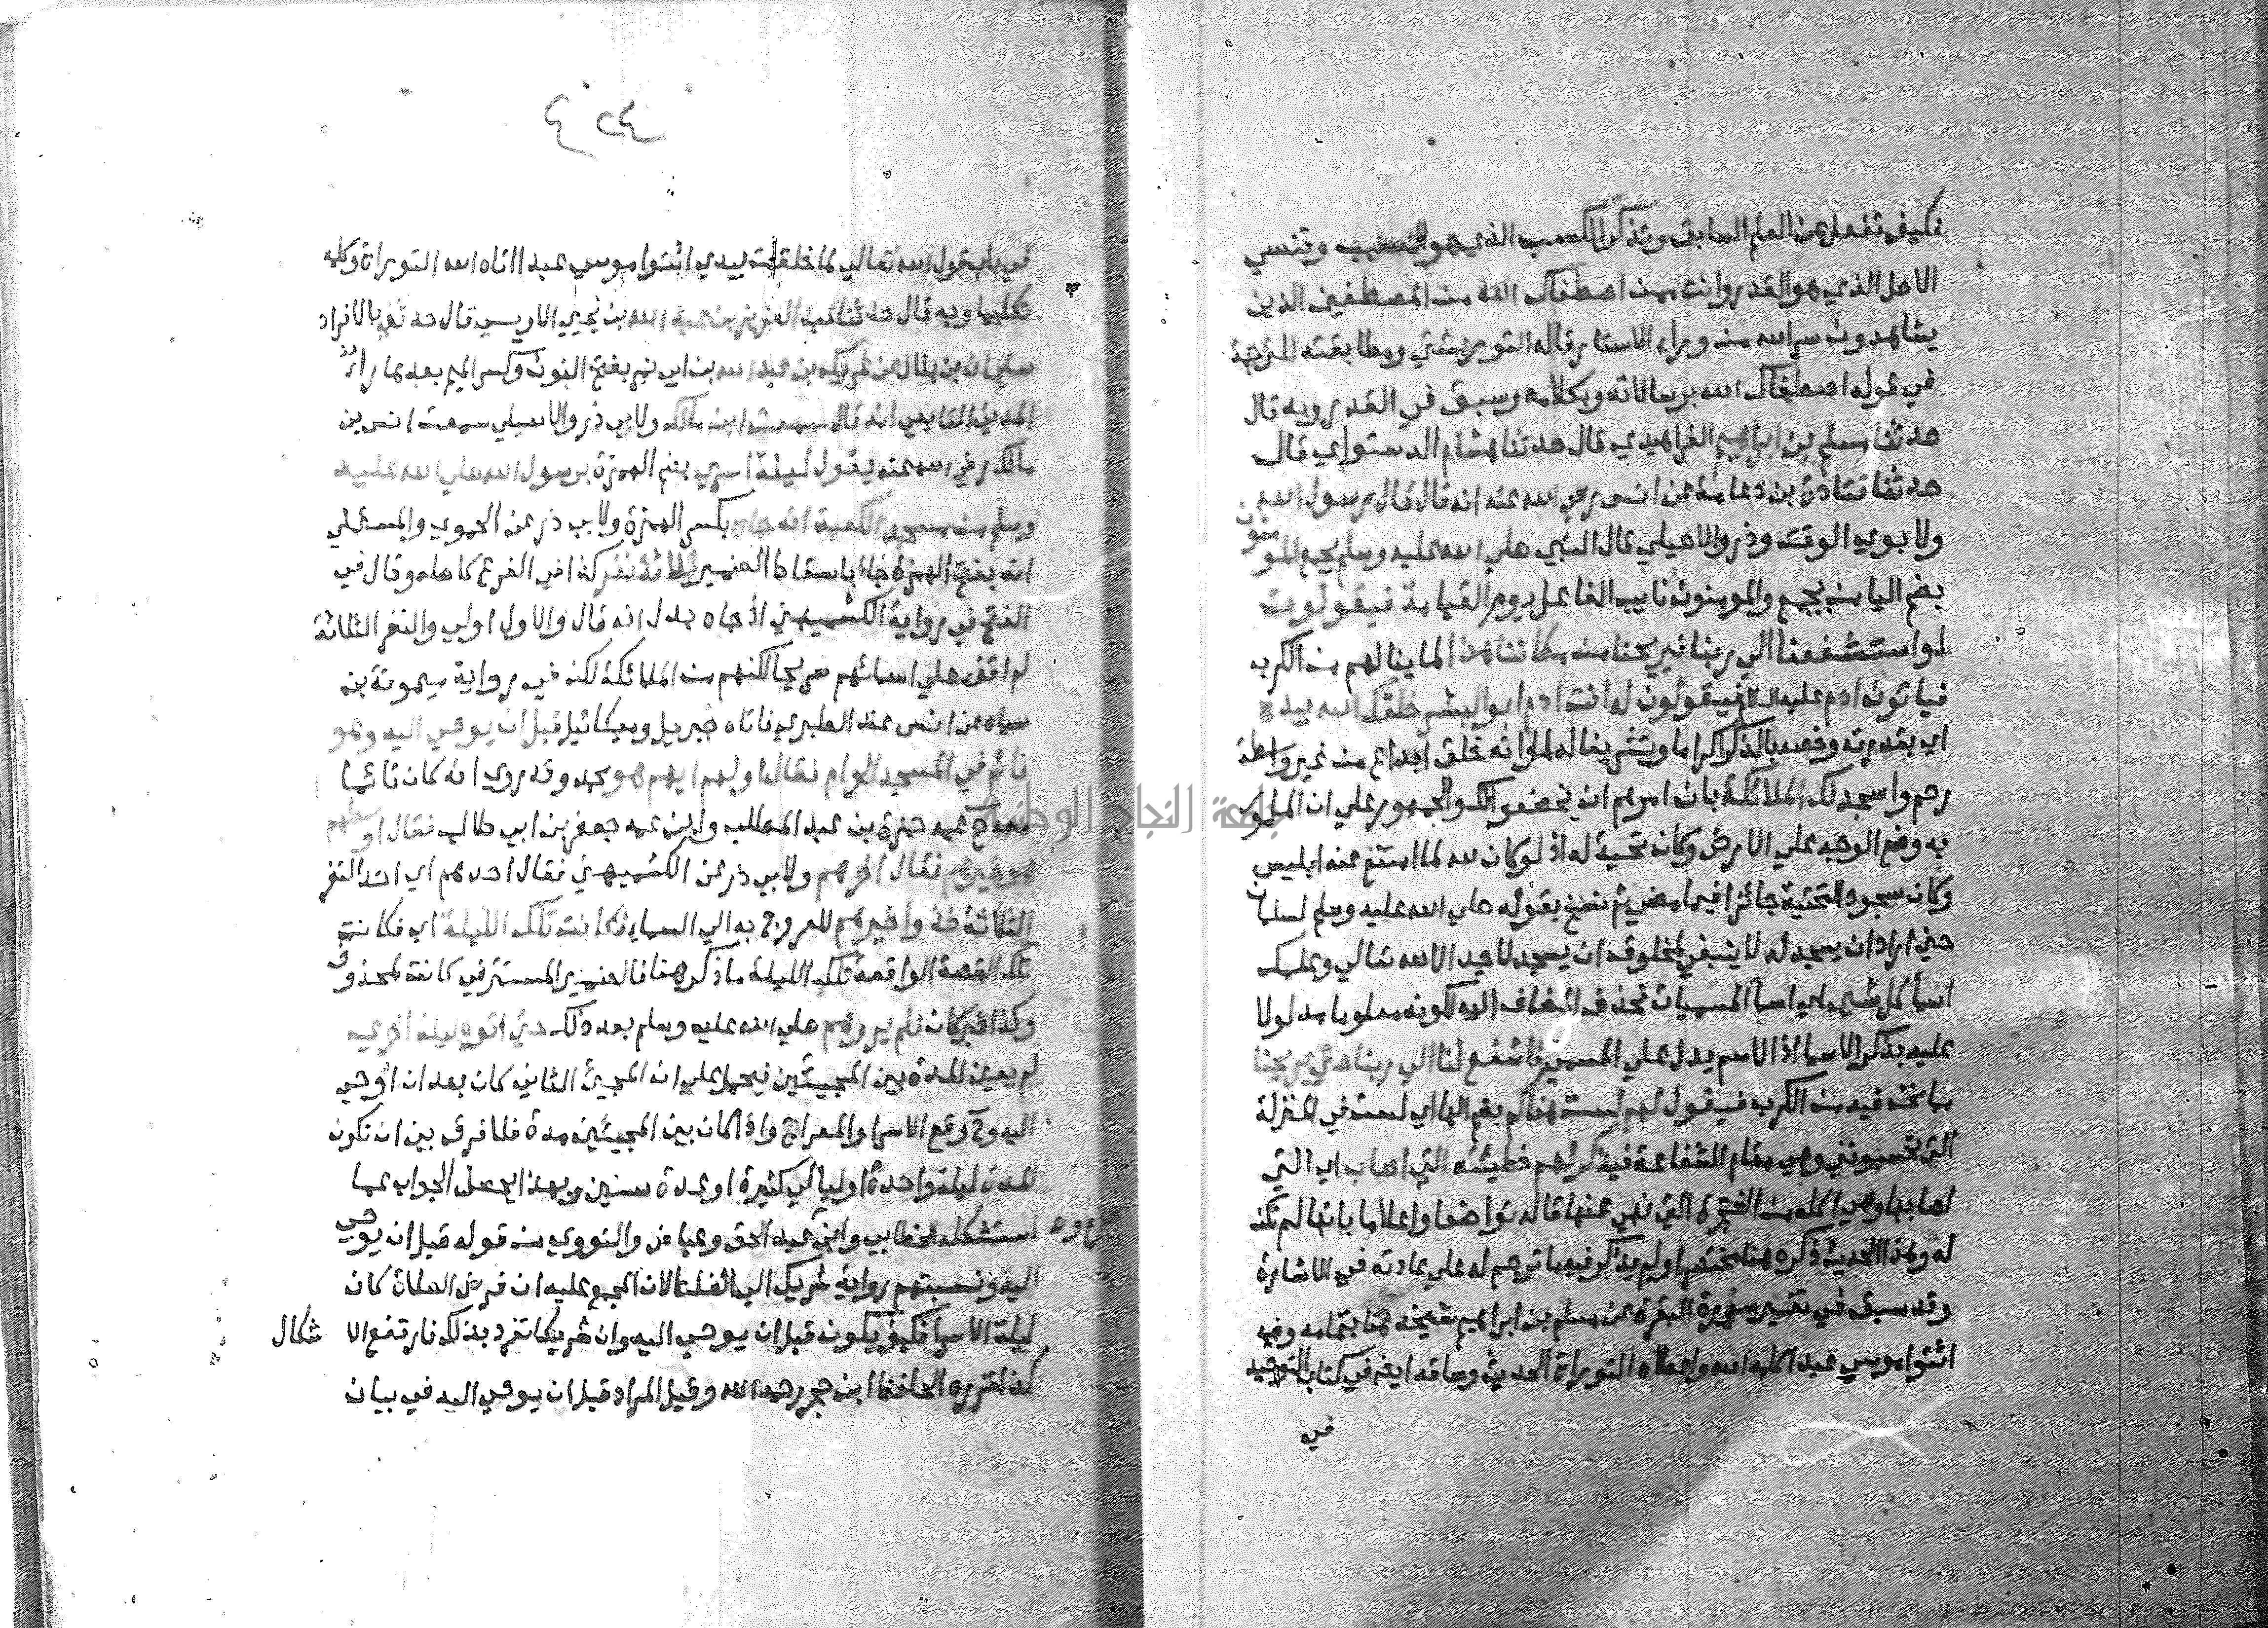 فكيف تغفل عن العلم السابق وتذكر الكسب الذي هو السبب وتنسي
الاصل الذي هو القدر وانت ممن اصطفاك الله من المصطفين الذين
يشاهدون سر الله من وراء الاستار قاله التوربشتي ومطابقته للترجمة
في قوله اصطفاك الله برسالاته وبكلامه وسبق في القدر وبه قال
حدثنا مسلم بن ابراهيم الفراهيدي قال حدثنا هشام الدستواي قال
حدثنا قتادة بن دعامة عن انس رضي الله عنه انه قال قال رسول الله
ولابوي الوقت وذر والاصيلي قال النبي صلي الله عليه وسلم يجمع المومنون
بضم اليا من يجمع والمومنون نايب الفاعل يوم القيامة فيقولون
لو استشفعنا الي ربنا فيريحنا من مكاننا هذا لما ينالهم من الكرب
فياتون ادم عليه السلام فيقولون له انت ادم ابو البشر خلقك الله بيده
اي بقدرته وخصه بالذكر اكراما وتشريفا له او انه خلق ابداع من غير واسطة
رحم واسجد لك الملائكة بان امرهم ان يخضعوا لك والجمهور علي ان المامور
به وضع الوجه علي الارض وكان تحية له اذ لو كان لله لما امتنع عنه ابليس
وكان سجود التحية جائزا فيما مضي ثم نسخ بقوله صلي الله عليه وسلم لسلمان
حين اراد ان يسجد له لا ينبغي لمخلوق ان يسجد لاحد الا لله تعالي وعلمك
اسما كل شي اي اسما المسميات فحذف المضاف اليه لكونه معلوما مدلولا
عليه بذكر الاسما اذ الاسم يدل علي المسمي فاشفع لنا الي ربنا حتي يريحنا
مما نحن فيه من الكرب فيقول لهم لست هناكم بضم الها اي لست في المنزلة
التي تحسبونني وهي مقام الشفاعة فيذكر لهم خطيئته التي اصاب اي التي
اصابها وهي اكله من الشجرة التي نهي عنها قاله تواضعا واعلاما بانها لم تكن
له وهذا الحديث ذكره هنا مختصرا ولم يذكر فيه ما ترجم له علي عادته في الاشارة
وقد سبق في تفسير سورة البقرة عن مسلم بن ابراهيم شيخه هنا بتمامه وفيه
ائتوا موسي عبدا كلمه الله واعطاه التوراة الحديث وساقه ايضا في كتاب التوحيد
في
٤٢٤
في باب قول الله تعالي لما خلقت بيدي ائتوا موسي عبدا اتاه الله التوراة وكلمه
تكليما وبه قال حدثنا عبد العزيز بن عبد الله بن يحيي الاويسي قال حدثني بالافراد
سليمان بن بلال عن شريك بن عبد الله بن ابي نمر بفتح النون وكسر الميم بعدها راء
المديني التابعي انه قال سمعت ابن مالك ولابي ذر والاصيلي سمعت انس بن
مالك رضي الله عنه يقول ليلة اسري بضم الهمزة برسول الله صلي الله عليه
وسلم من مسجد الكعبة انه جاء بكسر الهمزة ولابي ذر عن الحموي والمستملي
انه بفتح الهمزة جاء باسقاط الضمير ثلاثة نفر كذا في الفرع كاصله وقال في
الفتح في رواية الكشميهني اذ جاه بدل انه قال والاول اولي والنفر الثلاثة
لم اقف علي اسمائهم صريحا لكنهم من الملائكة لكن في رواية ميمون بن
سياه عن انس عند الطبري فاتاه جبريل وميكائيل قبل ان يوحي اليه وهو
نائم في المسجد الحرام فقال اولهم ايهم هو محمد وقد روي انه كان نائما
معه ح عمه حمزة بن عبد المطلب وابن عمه جعفر بن ابي طالب فقال اوسطهم
هو خيرهم فقال اخرهم ولابي ذر عن الكشميهني فقال احدهم اي احد النفر
الثلاثة خذوا خيرهم للعروج به الي السماء فكانت تلك الليلة اي فكانت
تلك القصة الواقعة تلك الليلة ما ذكر هنا فالضمير المستتر في كانت لمحذوف
وكذا خبر كان فلم يرهم صلي الله عليه وسلم بعد ذلك حتي اتوه ليلة اخري
لم يعين المدة بين المجيئين فيحمل علي ان المجيئ الثاني كان بعد ان اوحي
اليه وح وقع الاسرا والمعراج واذا كان بين المجيئين مدة فلا فرق بين ان تكون
المدة ليلة واحدة او ليالي كثيرة او عدة سنين وبهذا يحصل الجواب عما
استشكله الخطابي وابن عبد الحق وعياض والنووي من قوله قبل ان يوحي
اليه ونسبتهم رواية شريك الي الغلط لان المجمع عليه ان فرض الصلاة كان
ليلة الاسرا فكيف يكون قبل ان يوحي اليه وان شريكا تفرد بذلك فارتفع الا شكال
كذا قرره الحافظ ابن حجر رحمه الله وقيل المراد قبل ان يوحي اليه في بيان
جامعة النجاح الوطنية